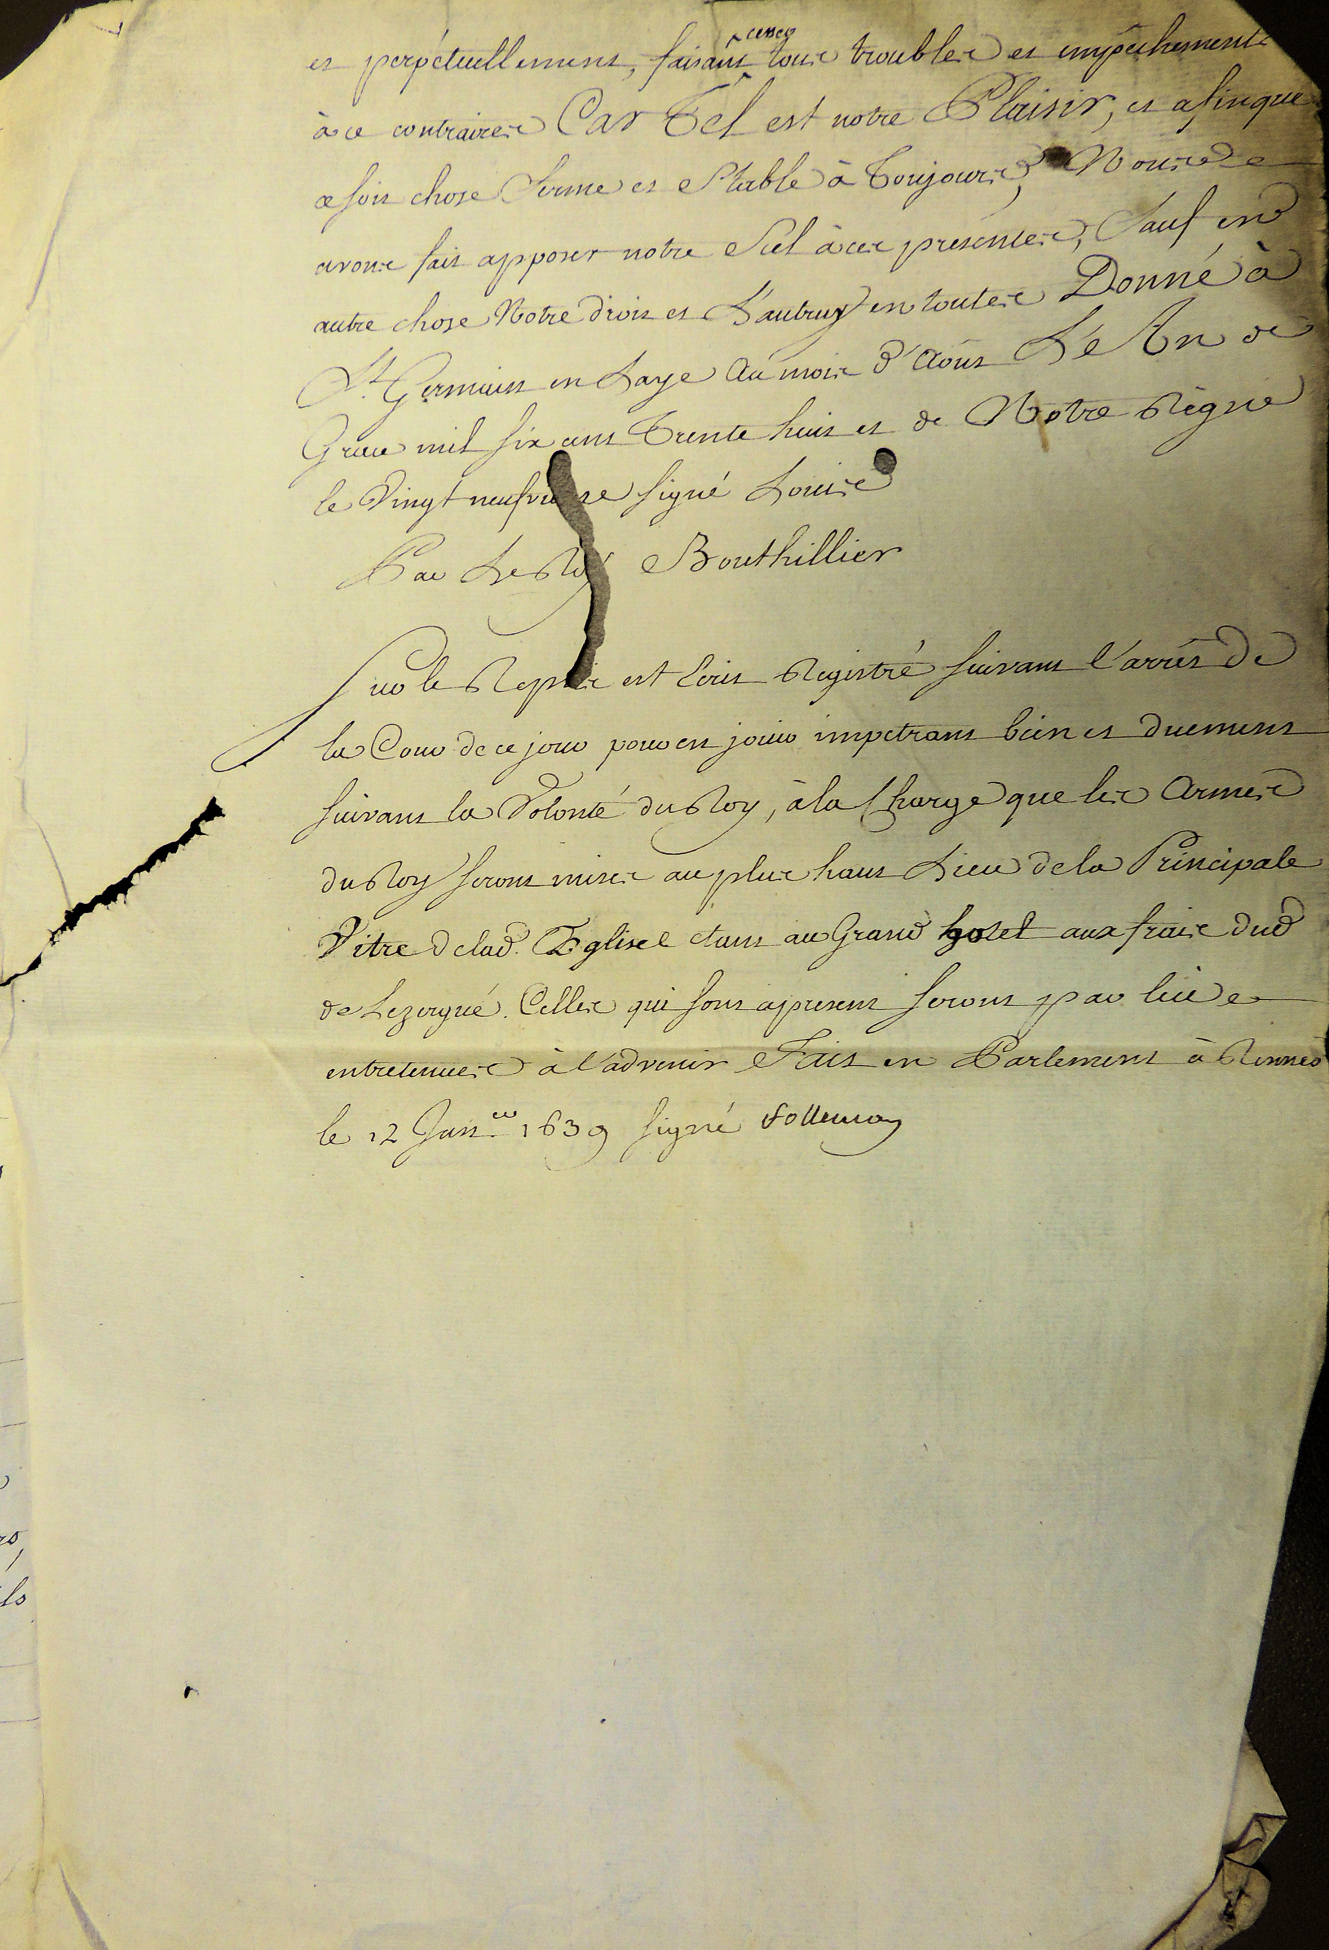 et perpétuellement, faisant cesser tous troubles et empêchements
à ce contraires Car Tel est notre Plaisir, et afin que
ce soit chose ferme et Stable à Toujours, Nous
avons fait apposer notre Scel à ces presentes, Sauf en
autre chose Notre droit et L'autruy en toutes Donné à
St Germain en Laye Au mois d'Aoust L'An de
Grace mil six cens Trente huit et de Notre Règne
le Vingt neufvieme signé Louis
Par Le Roy Bouthillier
Sur le Reply est Ecrit Registré suivant l'arrêt de
la Cour de ce jour pour en jouir impetrant bien et duement
suivant la Volonté du Roy, à la Charge que les Armes
du Roy seront mises au plus haut Lieu de la Principale
Vitre de lad. Eglise étant au Grand hotel aux frais dud
de Lezergué. Celles qui sont apresent seront par luy
entretenues à l'advenir Fait en Parlement à Rennes
le 12 Janer 1639 signé